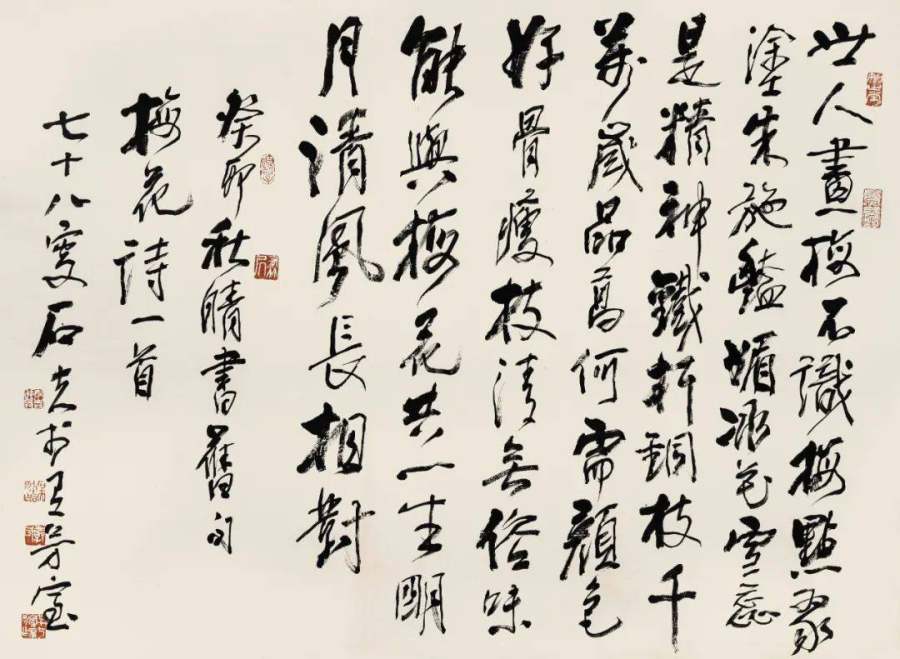 世人畫梅不識梅點翠
塗朱施豔媚冰花雪蕊
是精神鐵幹銅枝千
萬歲品高何需顏色
好骨瘦枝清無俗味
能與梅花共一生明
月清風長相對
癸卯秋晴書舊句
梅花詩一首
七十八叟石文於芳室